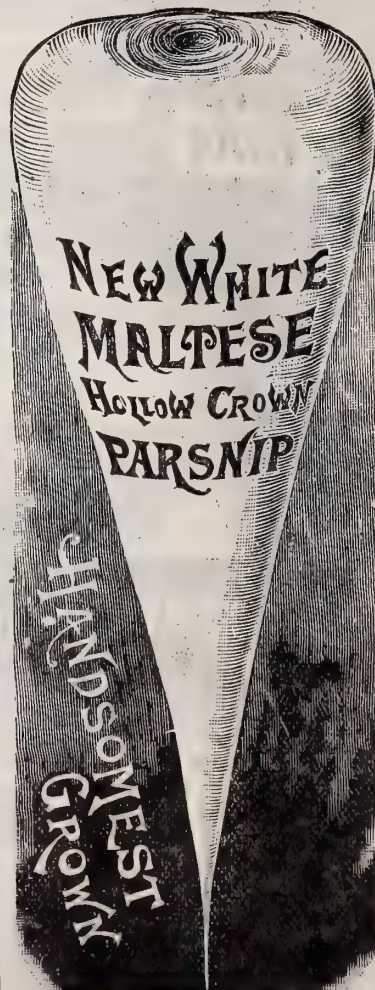 NEW WHITE
MALTESE
HOLLOW CROWN
PARSNIP
HANDSOMEST
GROWN